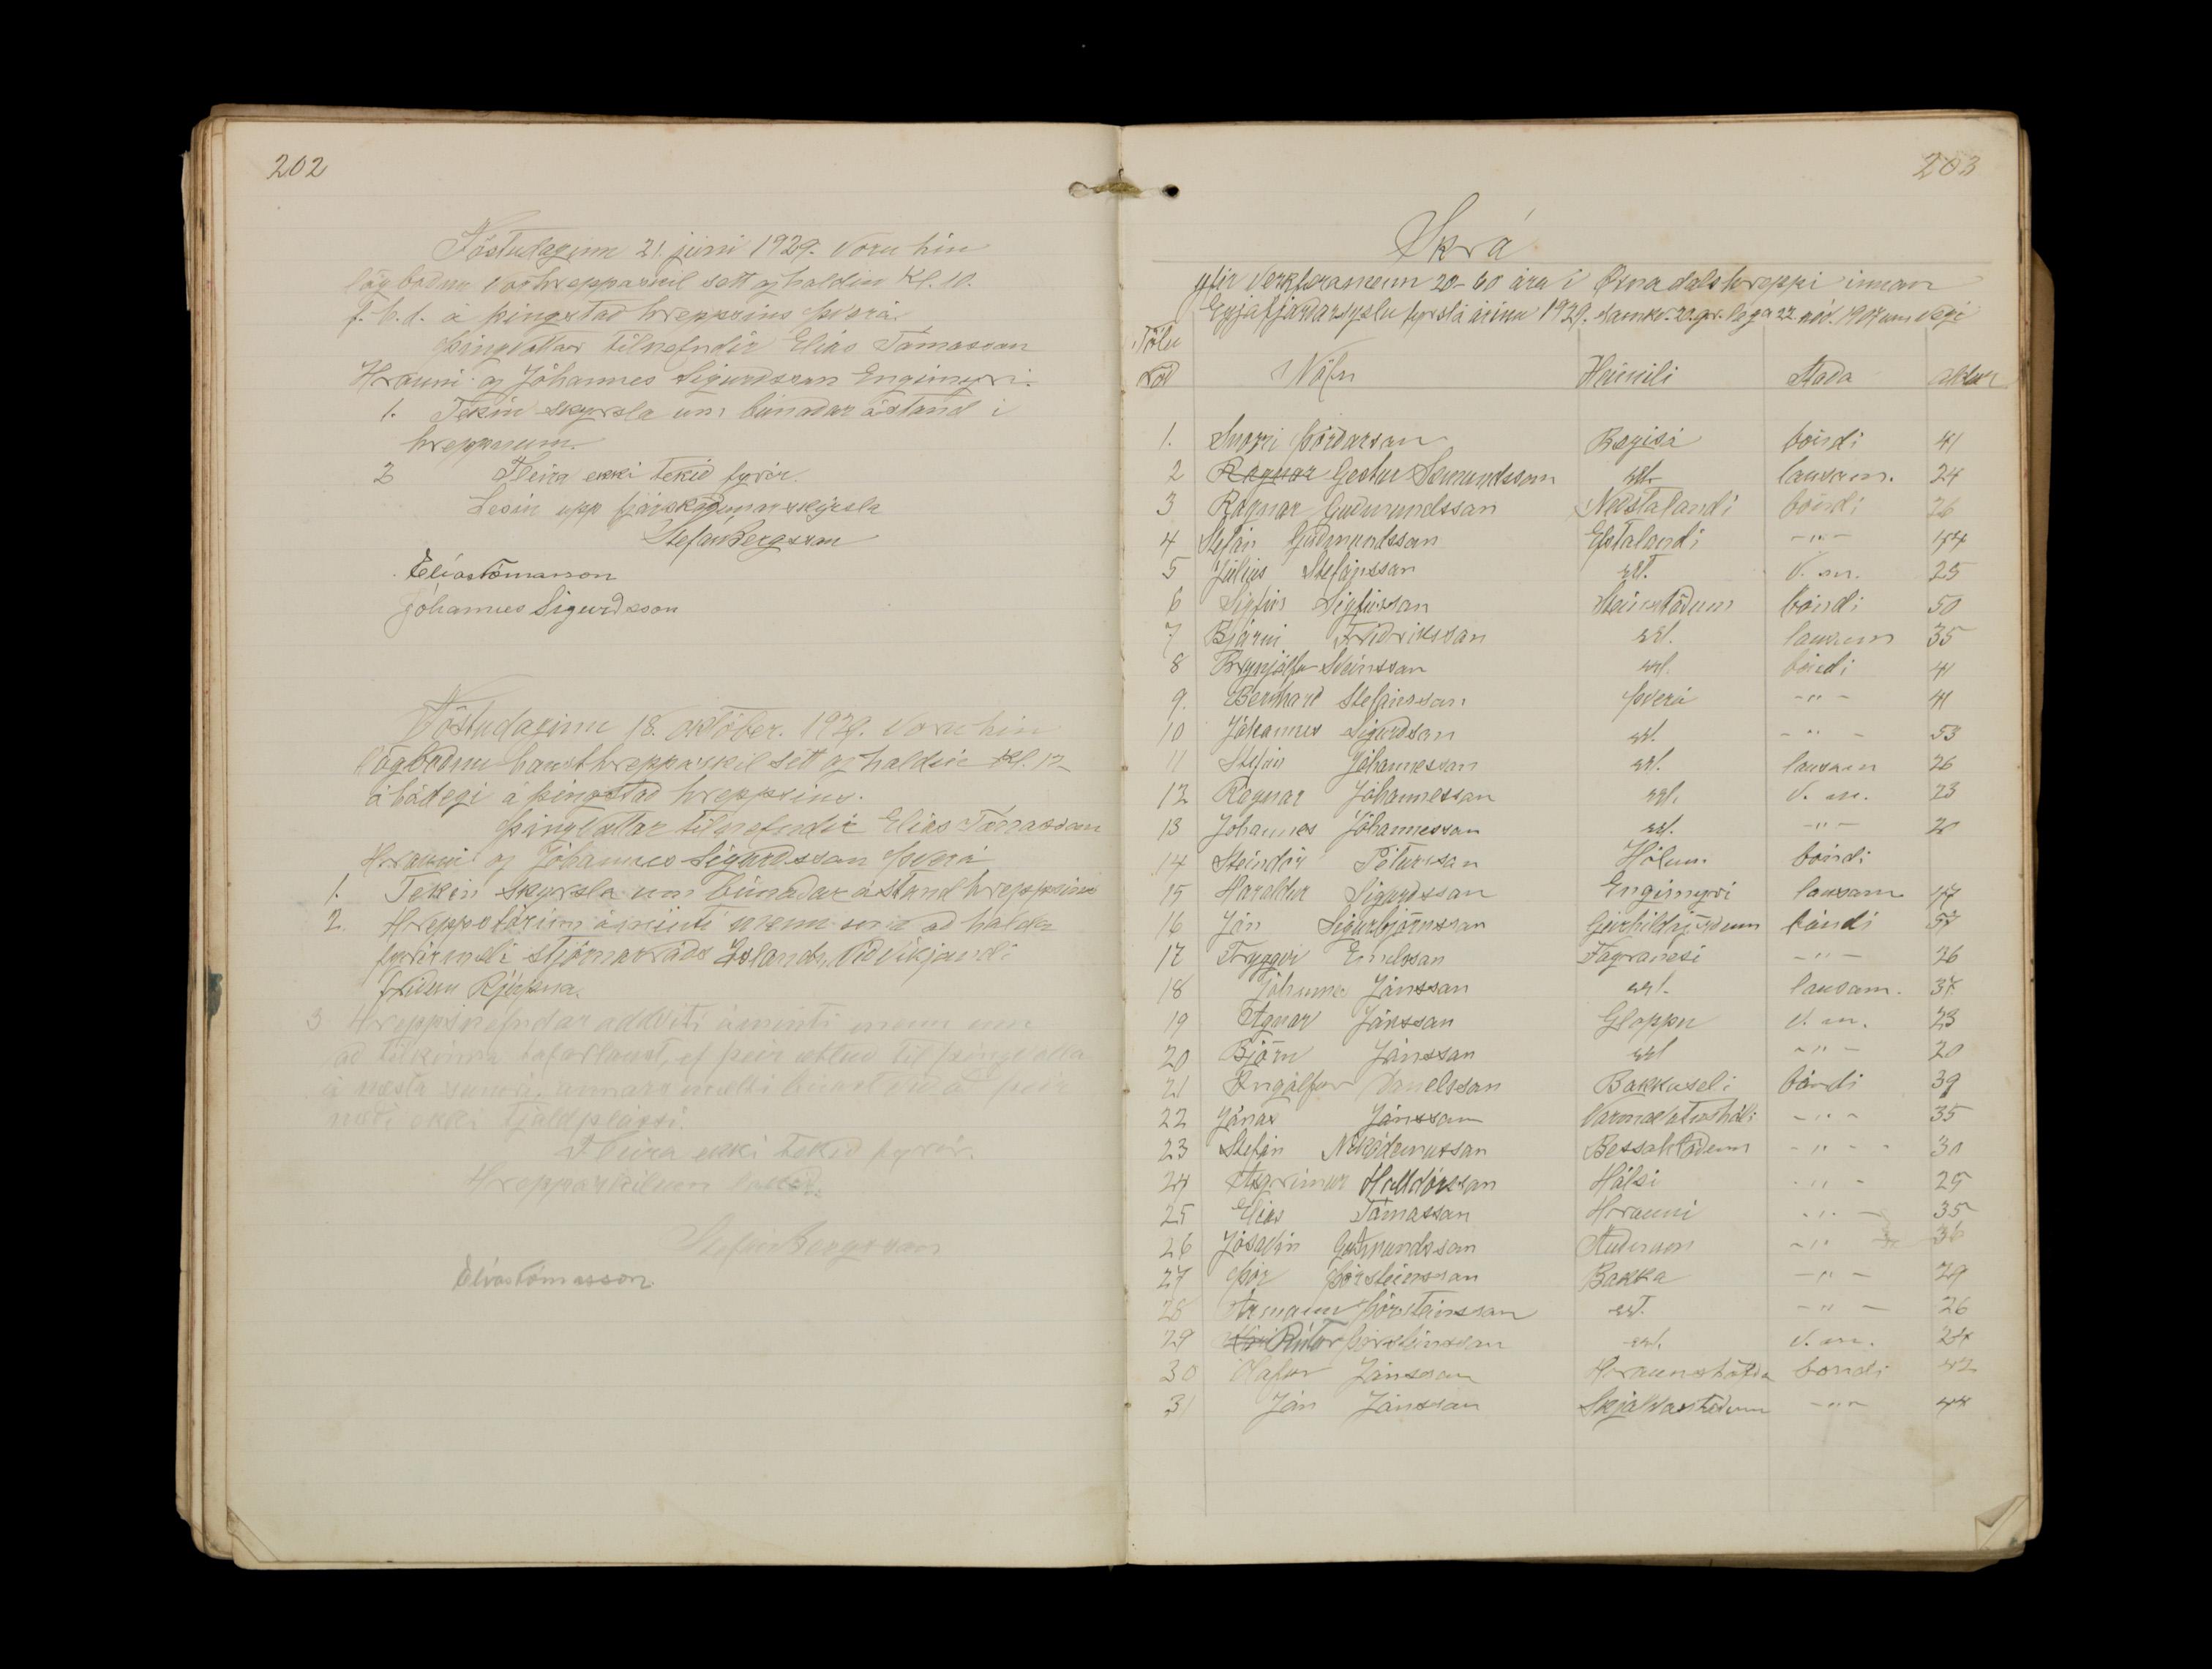 202
Föstudaginn 21. júní 1929. voru hin
lögboðnu vorhreppaskil sett og haldin kl. 10.
f. h. d. á þingstað hreppsins Þverá.
Þingvottar tilnefndir Elías Tómasson
Hrauni og Jóhannes Sigurðsson Engimýri.
1. Tekin skyrsla um búnaðar ástand í
hreppnum.
2 Fleira ekki tekið fyrir.
Lesin upp fjárskoðunarskýrsla
Stefán Bergsson
Elías Tómasson
Jóhannes Sigurdsson
Föstudaginn 18. október. 1929. voru hin
lögboðnu hausthreppaskil sett og haldin kl. 12
á hádegi á þingstað hreppsins.
Þingvottar tilnefndir Elías Tómasson
Hrauni og Jóhannes Sigurdsson Þverá
1. Tekin skyrsla um búnaðar ástand hreppsins
2. Hreppstórinn áminti menn um að halda
fyrirmæli stjórnarráðs Íslands viðvíkjandi
friðun Rjúpna.
3 Hreppsnefndar oddviti áminti menn um
að tilkinna tafarlaust, ef þeir ætluð til þingvalla
á næsta sumri, annars mætti búast við að þeir
næði ekki tjaldplássi.
Fleira ekki tekið fyrir.
Hreppaskilum lokið.
Stefán Bergsson
Elías Tómasson
203
Skrá
yfir verkfæramenn 20-60 ára í Öxnadalshreppi innan
Eyjafjarðarsyslu fyrsta árinu 1929. samkv. 20. gr. laga 22. nóv. 1907 um vegi
Tölu
röð Nöfn Heimili Staða aldur
1. Snorri Þórðarson Bægisá bóndi 41
2 Ragnar Gestur Sæmundsson sst. lausam. 24
3 Ragnar Guðmundsson Neðstalandi bóndi 26
4 Stefán Guðmundsson Efstalandi -"- 44
5 Júlíus Stefánsson sst. V. m. 25
6 Sigfús Sigfússon Steinstöðum bóndi 50
7 Bjarni Friðriksson sst. lausam 35
8 Brynjólfur Sveinsson sst. bóndi 41
9. Bernharð Stefánsson Þverá -"- 41
10 Jóhannes Sigurðsson sst. -"- 53
11 Stefán Jóhannesson sst. lausam 26
12 Ragnar Jóhannesson sst. V. m. 23
13 Jóhannes Jóhannesson sst. -"- 20
14 Steindór Pétursson Hólum. bóndi
15 Haraldur Sigurdsson Engimyri lausam 47
16 Jón Sigurbjörnsson Geirhildargörðum bóndi 57
17 Tryggvi Emilsson Fagranesi -"- 26
18 Jóhannes Jónsson sst. lausam. 37
19 Agnar Jónsson Gloppu V. m. 23
20 Björn Jónsson sst -"- 20
21 Ingólfur Danelsson Bakkaseli bóndi 39
22 Jónas Jónsson Varmavatnshóli -"- 35
23 Stefán Nikódemusson Bessahlöðum -"- 30
24 Asgrímur Halldórsson Hálsi -"- 25
25 Elías Tómasson Hrauni -"- 35
26 Jósavin Guðmundsson Auðnum -"- 36
27 Þór Þorsteinsson Bakka -"- 29
28 Ármann Þorsteinsson sst. -"- 26
29 Rútur Þorsteinsson sst. V. m. 24
30 Ólafur Jónsson Hraunshöfða bóndi 42
31 Jón Jónsson Skjaldastöðum -"- 44